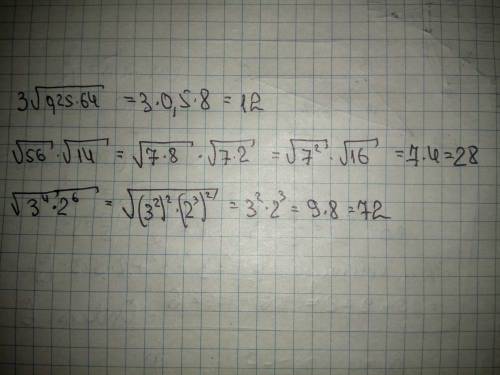 3√0,25·64 = 3·0,5·8 = 12
√56·√14 = √7·8·√7·2 = √7²·√16 = 7·4 = 28
√3⁴·2⁶ = √(3²)²·(2³)² = 3²·2³ = 9·8 = 72